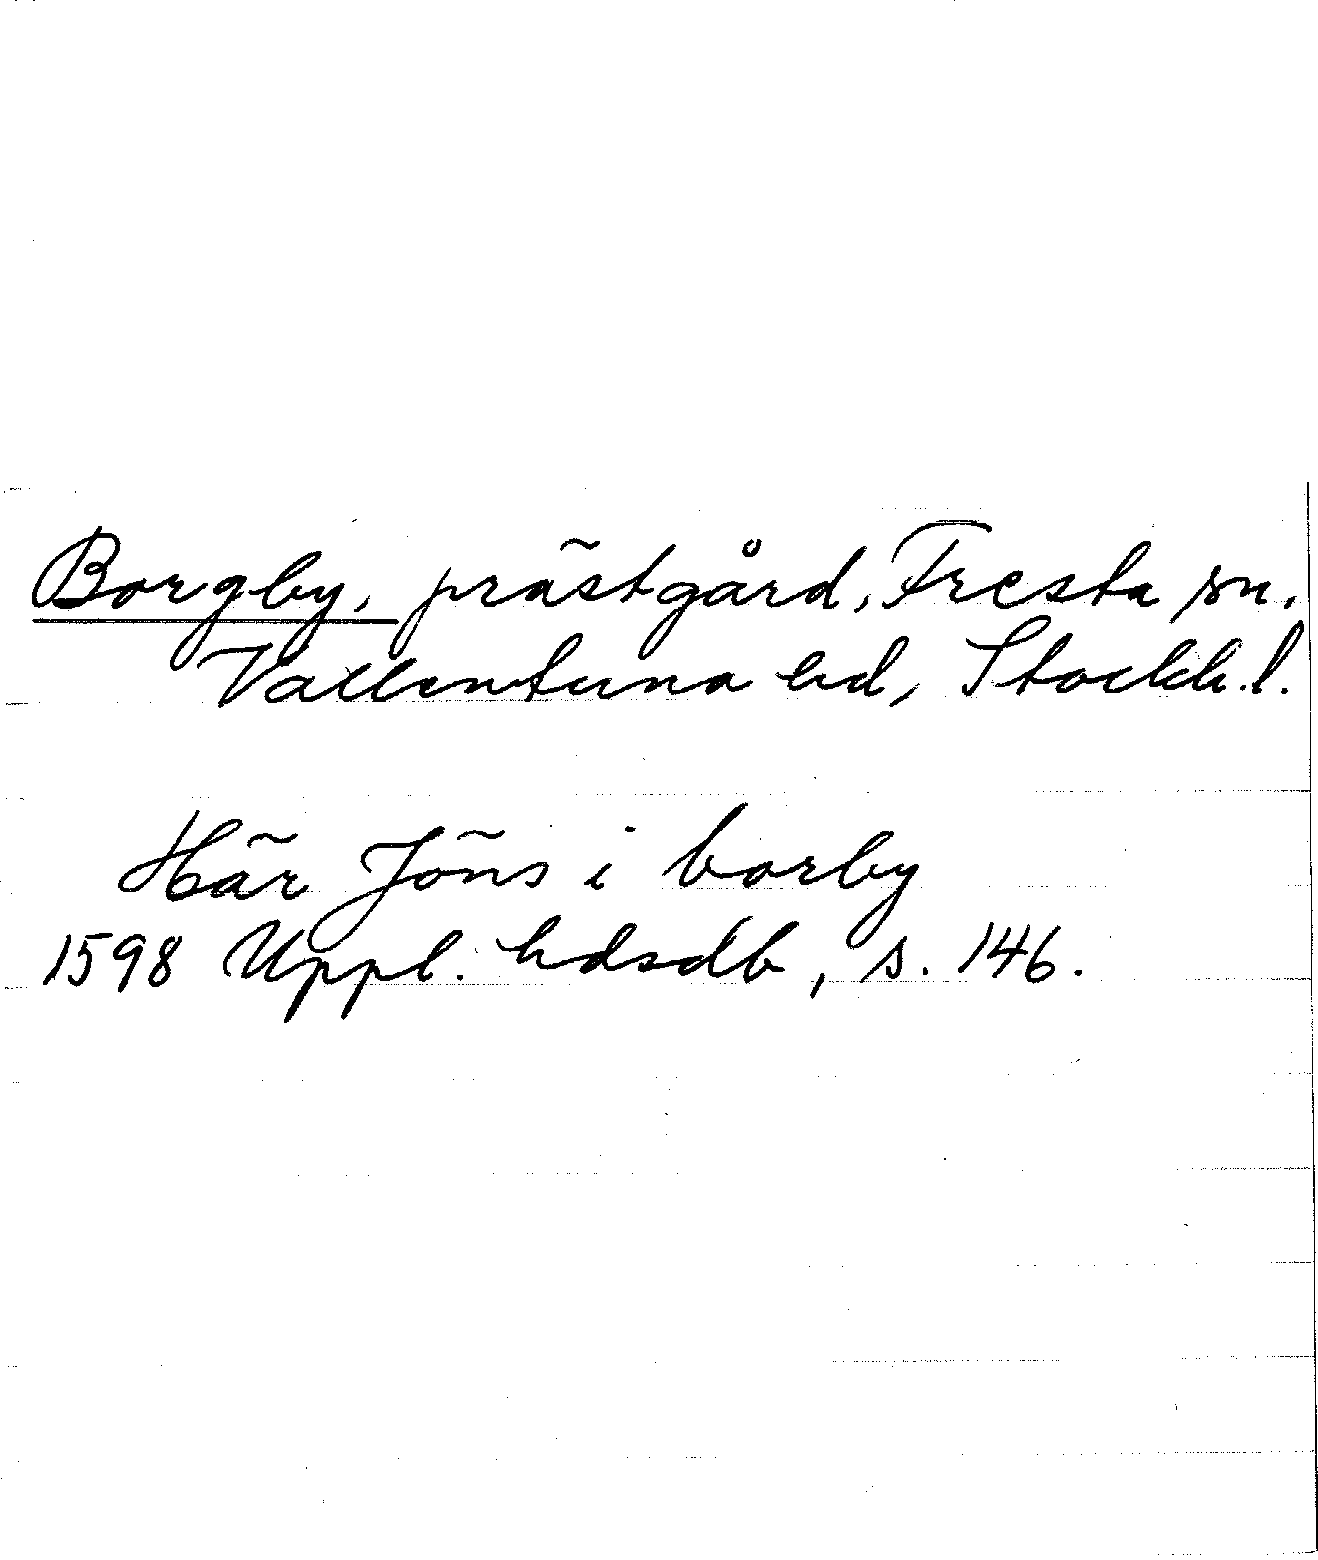 Borgby, prästgård, Fresta sn.
Vallentuna hd, Stockh.l.
Här Jöns i borby
1598 Uppl. hdsdb, s. 146.